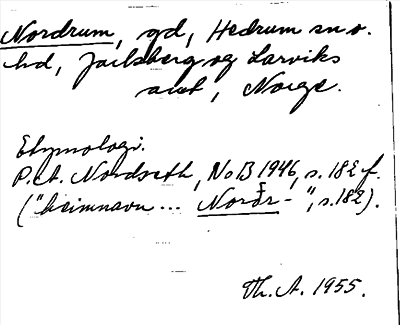 Nordrum, gd, Hedrum sn o.
hd, Jarlsberg og Larviks
amt, Norge.
Etymologi.
P.A. Nordseth, NoB 1946, s. 182 f.
("heimnavn ... Norðr-", s. 182).
Th. A. 1955.